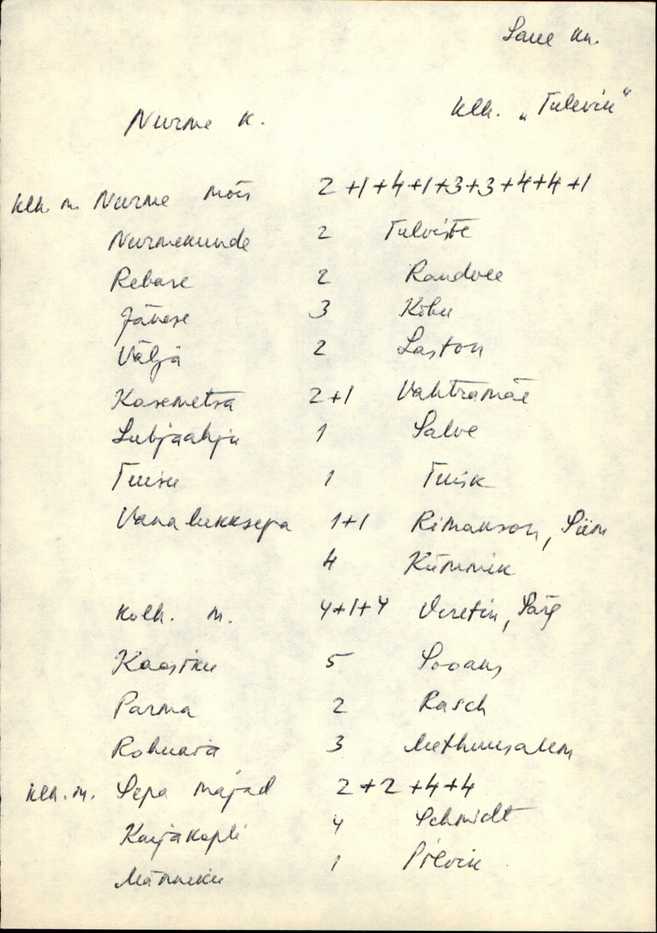 Saue kn.
Nurme k. klh. „Tulevik"
klh. m. Nurme mõis 2+1+4+1+3+3+4+4+1
Nurmekunde 2 Tulviste
Rebase 2 Randvee
Jänese 3 Kõhu
Välja 2 Laston
Kasemetsa 2+1 Vahtramäe
Lubjaahju 1 Salve
Tuisu 1 Tuisk
Vanalukksepa 1+1 Rimanson, Siim
4 Kümmik
kolh. m. 4+1+4 Veretin, Särg
Kaasiku 5 Sooans
Parma 2 Rasch
Rohuaia 3 Methuusalem
klh. m. Sepa majad 2+2+4+4
Karjakopli 4 Schmidt
Männiku 1 Pilvik